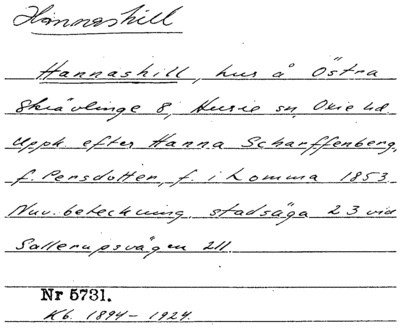 Hannashill
Hannashill, hus å Östra
Skrävlinge 8, Husie sn, Oxie hd.
Uppk. efter Hanna Scharffenberg,
f. Persdotter, f. i Lomma 1853.
Nuv. beteckning stadsäga 23 vid
Sallerupsvägen 211.
Nr 5731.
Kb. 1894-1924.